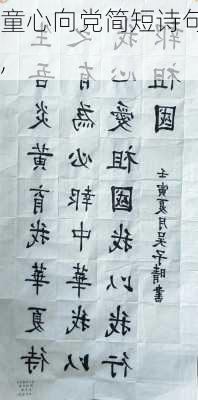 童心向党简短诗句
,
生吾炎黄育我華夏待
之有為必報中華我以
我心愛祖國我以我行
報祖國
壬寅夏月吴子晴書